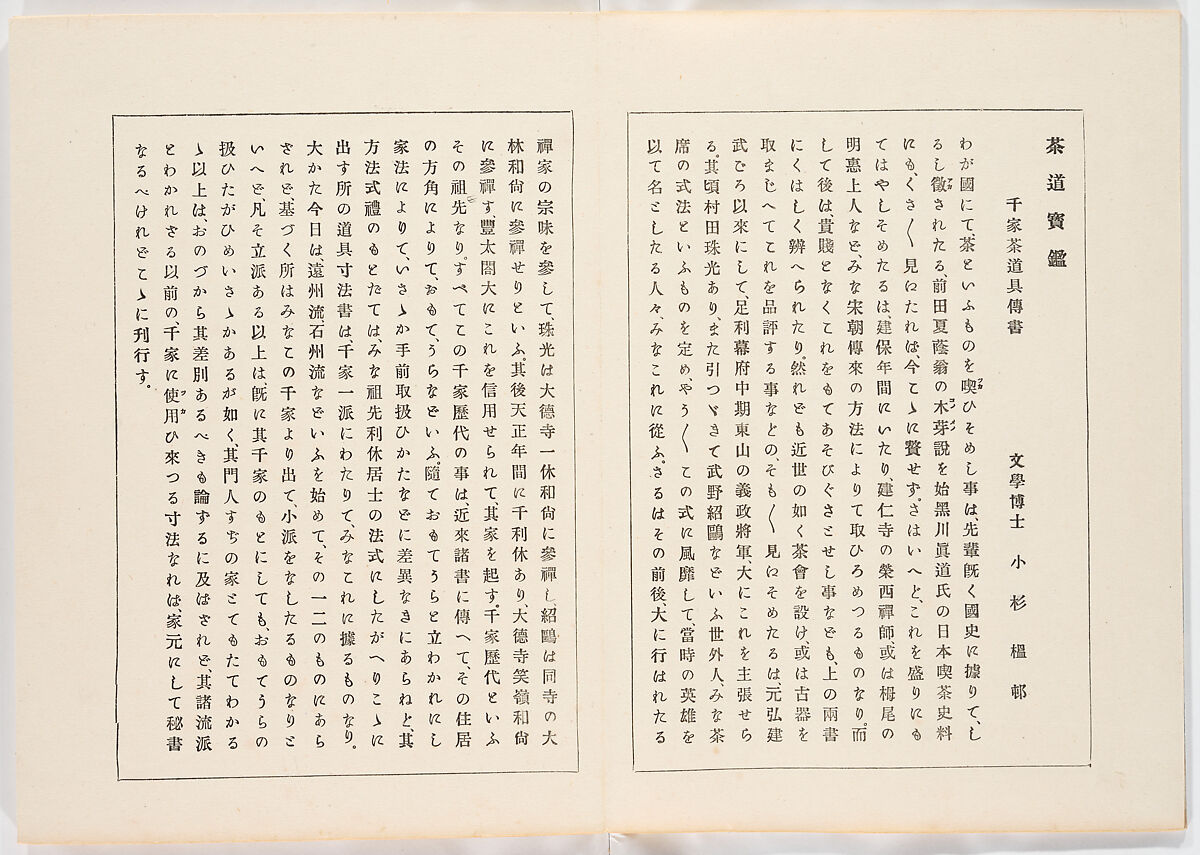 茶道寶鑑
千家茶道具傳書
文學博士 小杉榲邨
わが國にて、茶といふものを喫ひそめし事は先輩旣く國史に據りて、し
るし徵されたる、前田夏蔭翁の木芽說を始黑川眞道氏の日本喫茶史料
にも、くさ〱見にたれば、今こゝに贅せず。さはいへど、これを盛りにも
てはやしそめたるは、建保年間にいたり、建仁寺の榮西禪師或は栂尾の
明惠上人など、みな宋朝傳來の方法によりて取ひろめつるものなり。而
して後は貴賤となくこれをもてあそびぐさとせし事なども、上の兩書
にくはしく辨へられたり。然れども近世の如く茶會を設け、或は古器を
取まじへてこれを品評する事などの、そも〱見にそめたるは、元弘建
武ごろ以來にして、足利幕府中期東山の義政將軍、大にこれを主張せら
る。其頃村田珠光あり、また引つゞきて武野紹鷗などいふ世外人、みな茶
席の式法といふものを定めやう〱この式に風靡して、當時の英雄を
以て名としたる人々、みなこれに從ふ。さるはその前後、大に行はれたる
禪家の宗味を參して、珠光は大德寺一休和尙に參禪し紹鷗は同寺の大
林和尙に參禪せりといふ。其後天正年間に千利休あり、大德寺笑嶺和尙
に參禪す、豐太閤大にこれを信用せられて、其家を起す。千家歷代といふ
その祖先なり。すべてこの千家歷代の事は、近來諸書に傳へて、その住居
の方角によりて、おもて、うらなどいふ。隨ておもてうらと立わかれにし
家法によりて、いさゝか手前取扱ひかたなどに差異なきにあらねど、其
方法式禮のもとだては、みな祖先利休居士の法式にしたがへりこゝに
出す所の道具寸法書は、千家一派にわたりて、みなこれに據るものなり。
大かた今日は、遠州流石州流などいふを始めて、その一二のものにあら
されど、基づく所はみなこの千家より出て、小派をなしたるものなりと
いへど、凡そ立派ある以上は、旣に其千家のもとにしても、おもてうらの
扱ひたがひめいさゝかあるが如く、其門人すぢの家とてもたてわかる
ゝ以上は、おのづから其差別あるべきも論ずるに及ばされど、其諸流派
とわかれさる以前の、千家に使用ひ來つる寸法なれば、家元にして秘書
なるべけれどこゝに刊行す。